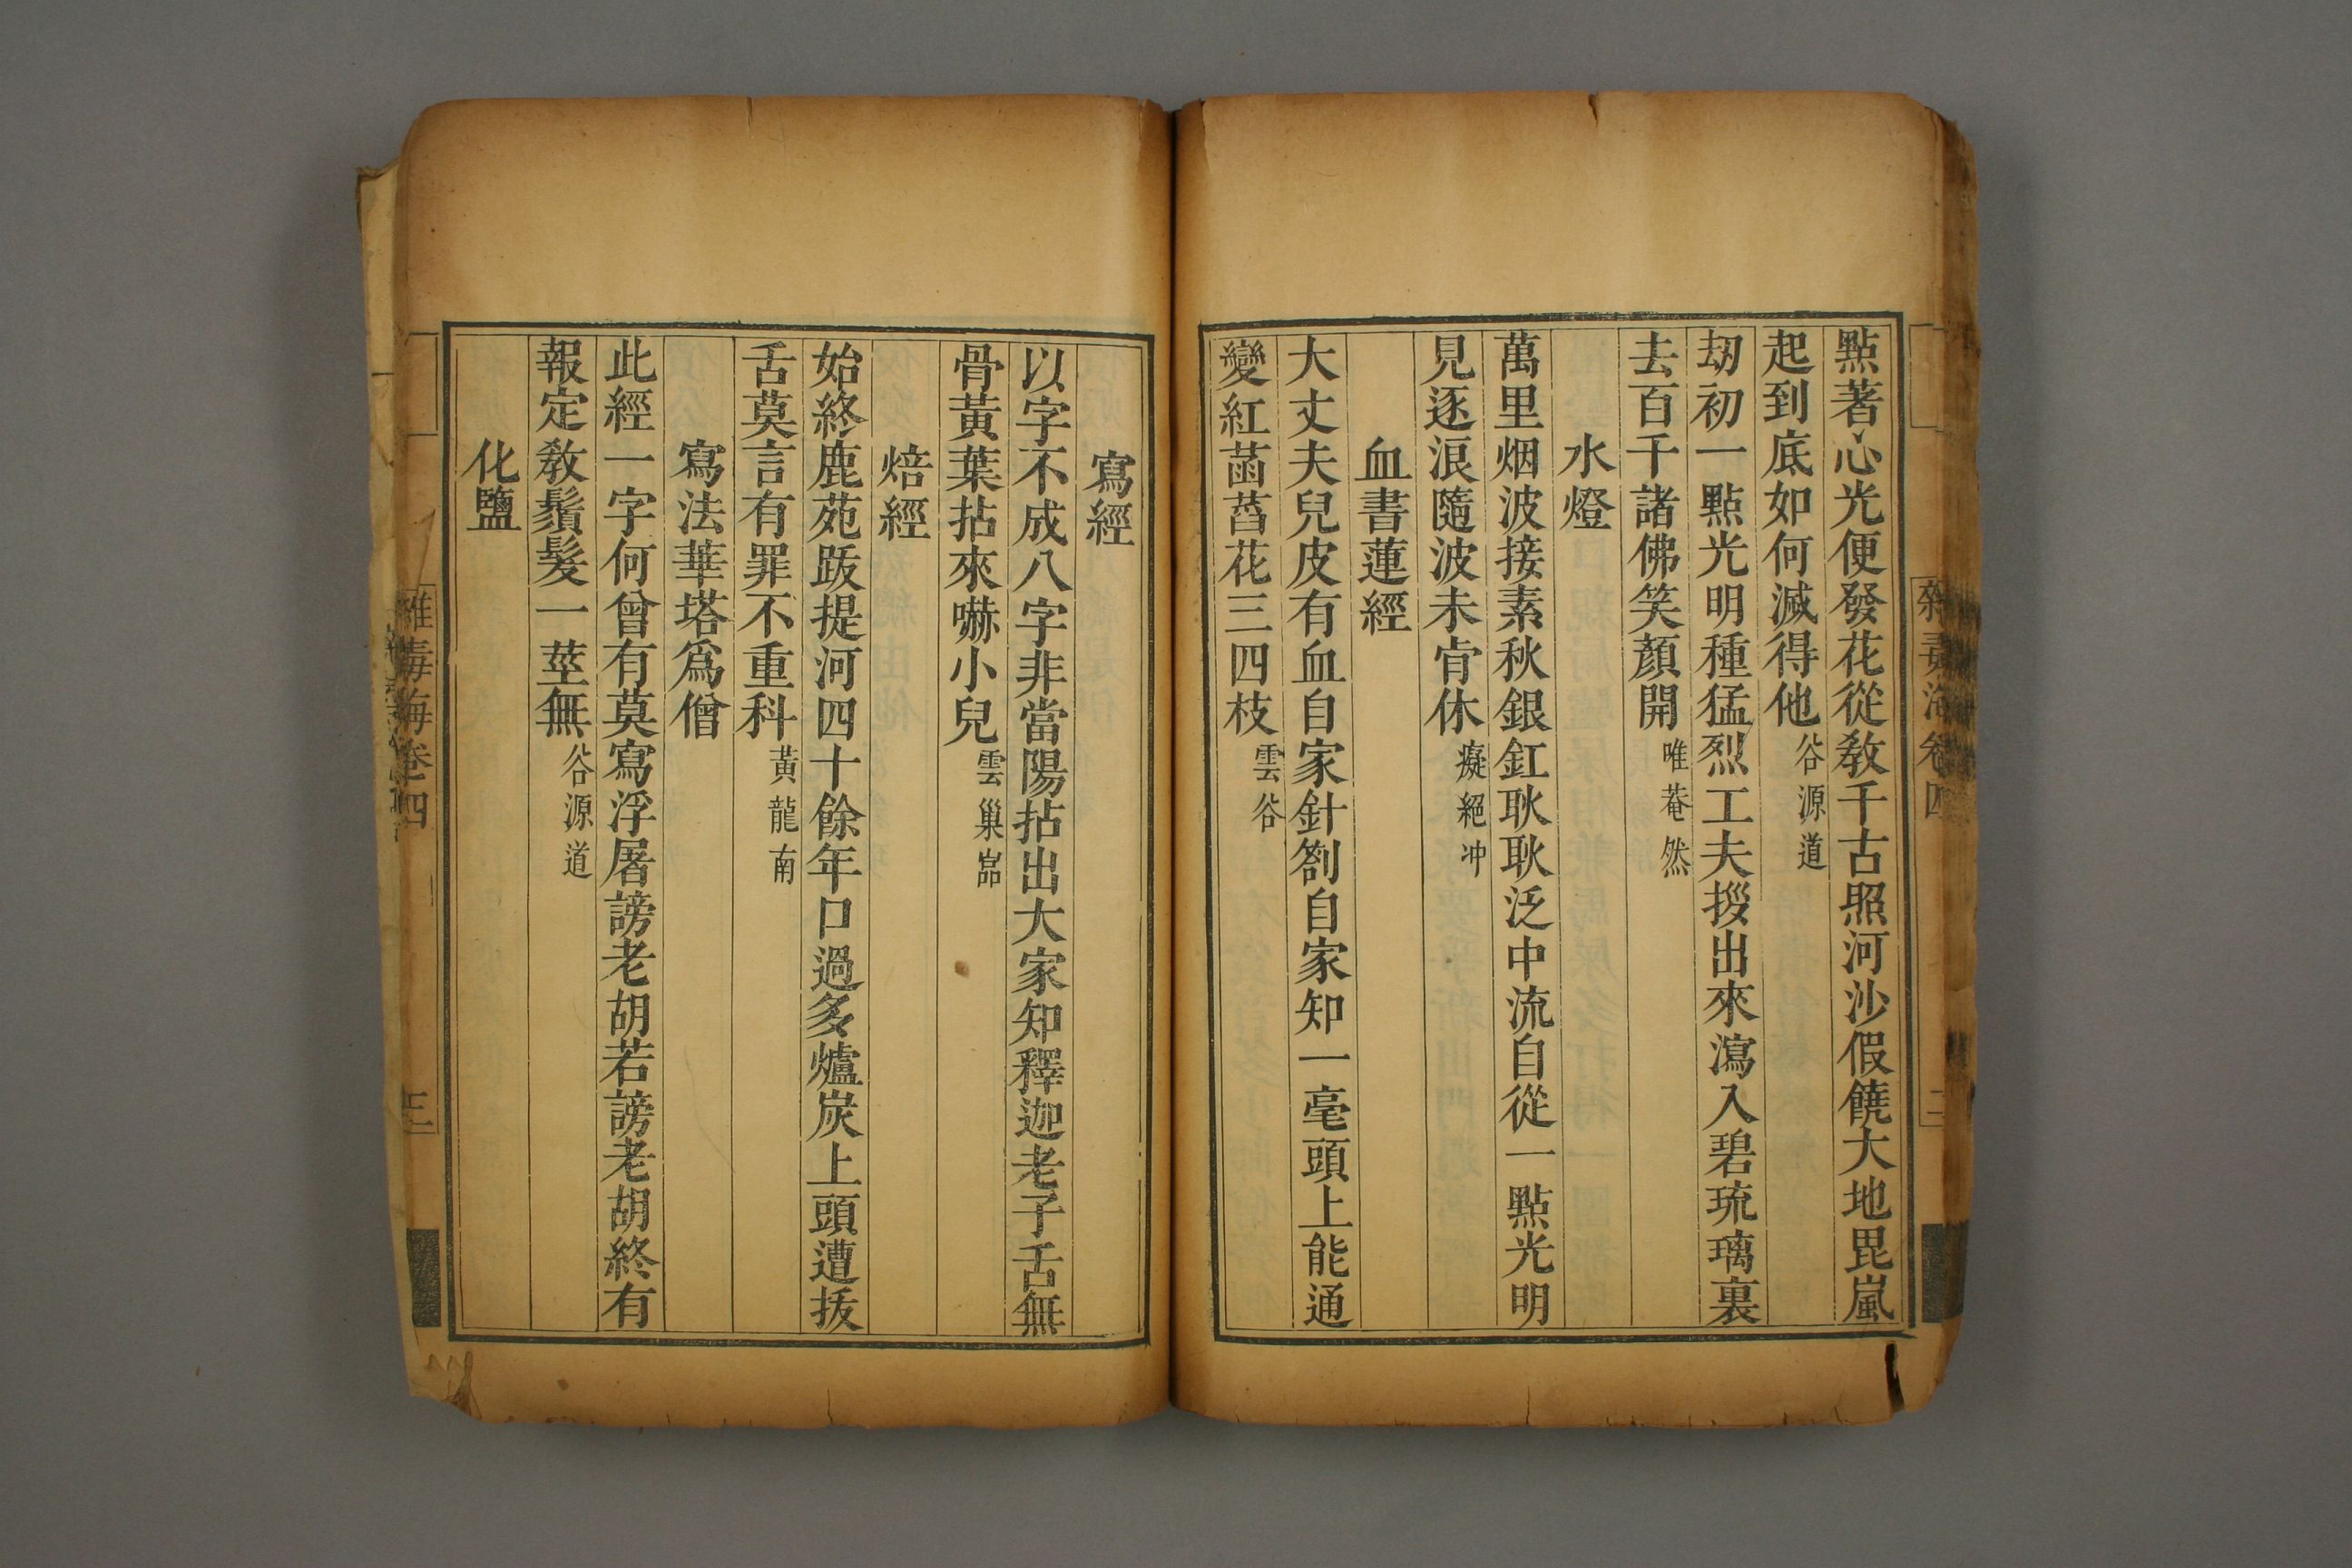 點著心光便發花從教千古照河沙假饒大地毘嵐
起到底如何滅得他 谷源道
刼初一點光明種猛烈工夫撥出來瀉入碧琉璃裏
去百千諸佛笑顏開 唯菴然
水燈
萬里烟波接素秋銀釭耿耿泛中流自從一點光明
見逐浪隨波未肯休 癡絕冲
血書蓮經
大丈夫兒皮有血自家針劄自家知一毫頭上能通
變紅菡萏花三四枝 雲谷
寫經
以字不成八字非當陽拈出大家知釋迦老子舌無
骨黃葉拈來嚇小兒 雲巢嵓
焙經
始終鹿苑跋提河四十餘年口過多爐炭上頭遭拔
舌莫言有罪不重科 黃龍南
寫法華塔爲僧
此經一字何曾有莫寫浮屠謗老胡若謗老胡終有
報定教鬚髮一莖無 谷源道
化鹽
雜毒海卷四
三